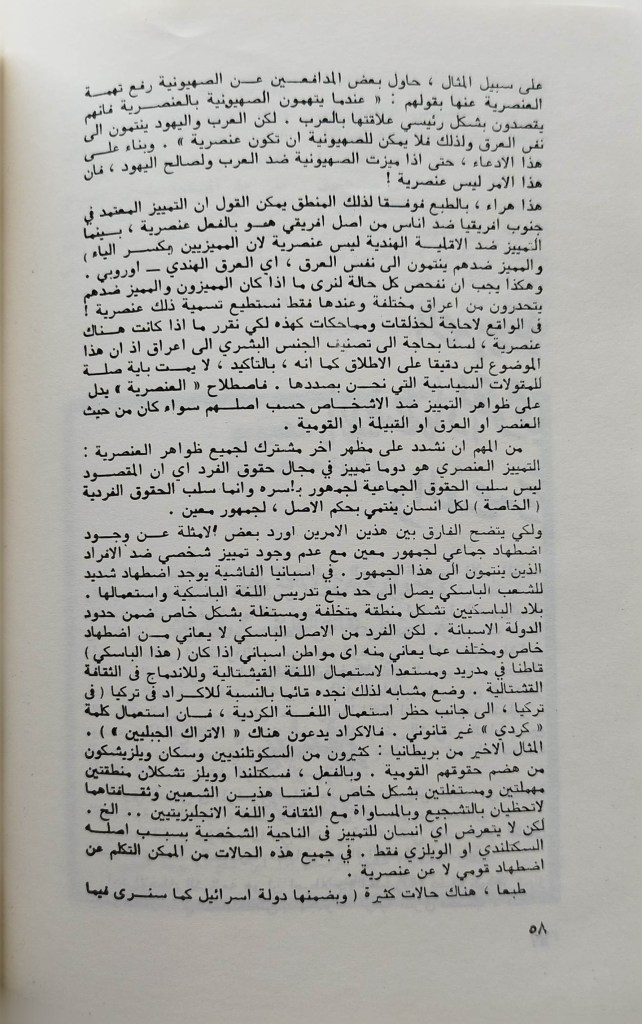 على سبيل المثال ، حاول بعض المدافعين عن الصهيونية رفع تهمة
العنصرية عنها بقولهم : « عندما يتهمون الصهيونية بالعنصرية فانهم
يقصدون بشكل رئيسي علاقتها بالعرب . لكن العرب واليهود ينتمون الى
نفس العرق ولذلك فلا يمكن للصهيونية ان تكون عنصرية » . وبناء على
هذا الادعاء ، حتى اذا ميزت الصهيونية ضد العرب ولصالح اليهود ، فان
هذا الامر ليس عنصرية !
هذا هراء ، بالطبع فوفقا لذلك المنطق يمكن القول ان التمييز المعتمد في
جنوب افريقيا ضد اناس من اصل افريقي هو بالفعل عنصرية ، بينما
التمييز ضد الاقلية الهندية ليس عنصرية لان المميزيين (بكسر الياء)
والمميز ضدهم ينتمون الى نفس العرق ، اي العرق الهندي ــ اوروبي .
وهكذا يجب ان نفحص كل حالة لنرى ما اذا كان المميزون والمميز ضدهم
يتحدرون من اعراق مختلفة وعندها فقط نستطيع تسمية ذلك عنصرية !
فى الواقع لاحاجة لحذلقات ومماحكات كهذه لكي نقرر ما اذا كانت هناك
عنصرية ، لسنا بحاجة الى تصنيف الجنس البشري الى اعراق اذ ان هذا
الموضوع ليس دقيقا على الاطلاق كما انه ، بالتأكيد ، لا يمت باية صلة
للمقولات السياسية التي نحن بصددها . فاصطلاح « العنصرية » يدل
على ظواهر التمييز ضد الاشخاص حسب اصلهم سواء كان من حيث
العنصر او العرق او القبيلة او القومية .
من المهم ان نشدد على مظهر اخر مشترك لجميع ظواهر العنصرية :
التمييز العنصري هو دوما تمييز في مجال حقوق الفرد اي ان المقصود
ليس سلب الحقوق الجماعية لجمهور بأسره وانما سلب الحقوق الفردية
( الخاصة ) لكل انسان ينتمي بحكم الاصل ، لجمهور معين .
ولكي يتضح الفارق بين هذين الامرين اورد بعض الامثلة عن وجود
اضطهاد جماعي لجمهور معين مع عدم وجود تمييز شخصي ضد الافراد
الذين ينتمون الى هذا الجمهور . في اسبانيا الفاشية يوجد اضطهاد شديد
للشعب الباسكي يصل الى حد منع تدريس اللغة الباسكية واستعمالها .
بلاد الباسكيين تشكل منطقة متخلفة ومستغلة بشكل خاص ضمن حدود
الدولة الاسبانة . لكن الفرد من الاصل الباسكي لا يعاني من اضطهاد
خاص ومختلف عما يعاني منه اى مواطن اسباني اذا كان ( هذا الباسكي )
قاطنا في مدريد ومستعدا لاستعمال اللغة القيشتالية وللاندماج فى الثقافة
القشتالية . وضع مشابه لذلك نجده قائما بالنسبة للاكراد فى تركيا ( فى
تركيا ، الى جانب حظر استعمال اللغة الكردية ، فان استعمال كلمة
« كردي » غير قانوني . فالاكراد يدعون هناك « الاتراك الجبليين » ) .
المثال الاخير من بريطانيا : كثيرون من السكوتلنديين وسكان ويلزيشكون
من هضم حقوقهم القومية . وبالفعل ، فسكتلندا وويلز تشكلان منطقتين
مهملتين ومستغلتين بشكل خاص ، لغتا هذين الشعبين وثقافتاهما
لاتحظيان بالتشجيع وبالمساواة مع الثقافة واللغة الانجليزيتيين .. الخ .
لكن لا يتعرض اي انسان للتمييز فى الناحية الشخصية بسبب اصله
السكتلندي او الويلزي فقط . في جميع هذه الحالات من الممكن التكلم عن
اضطهاد قومي لا عن عنصرية .
طبعا ، هناك حالات كثيرة ( وبضمنها دولة اسرائيل كما سنرى فيما
٥٨